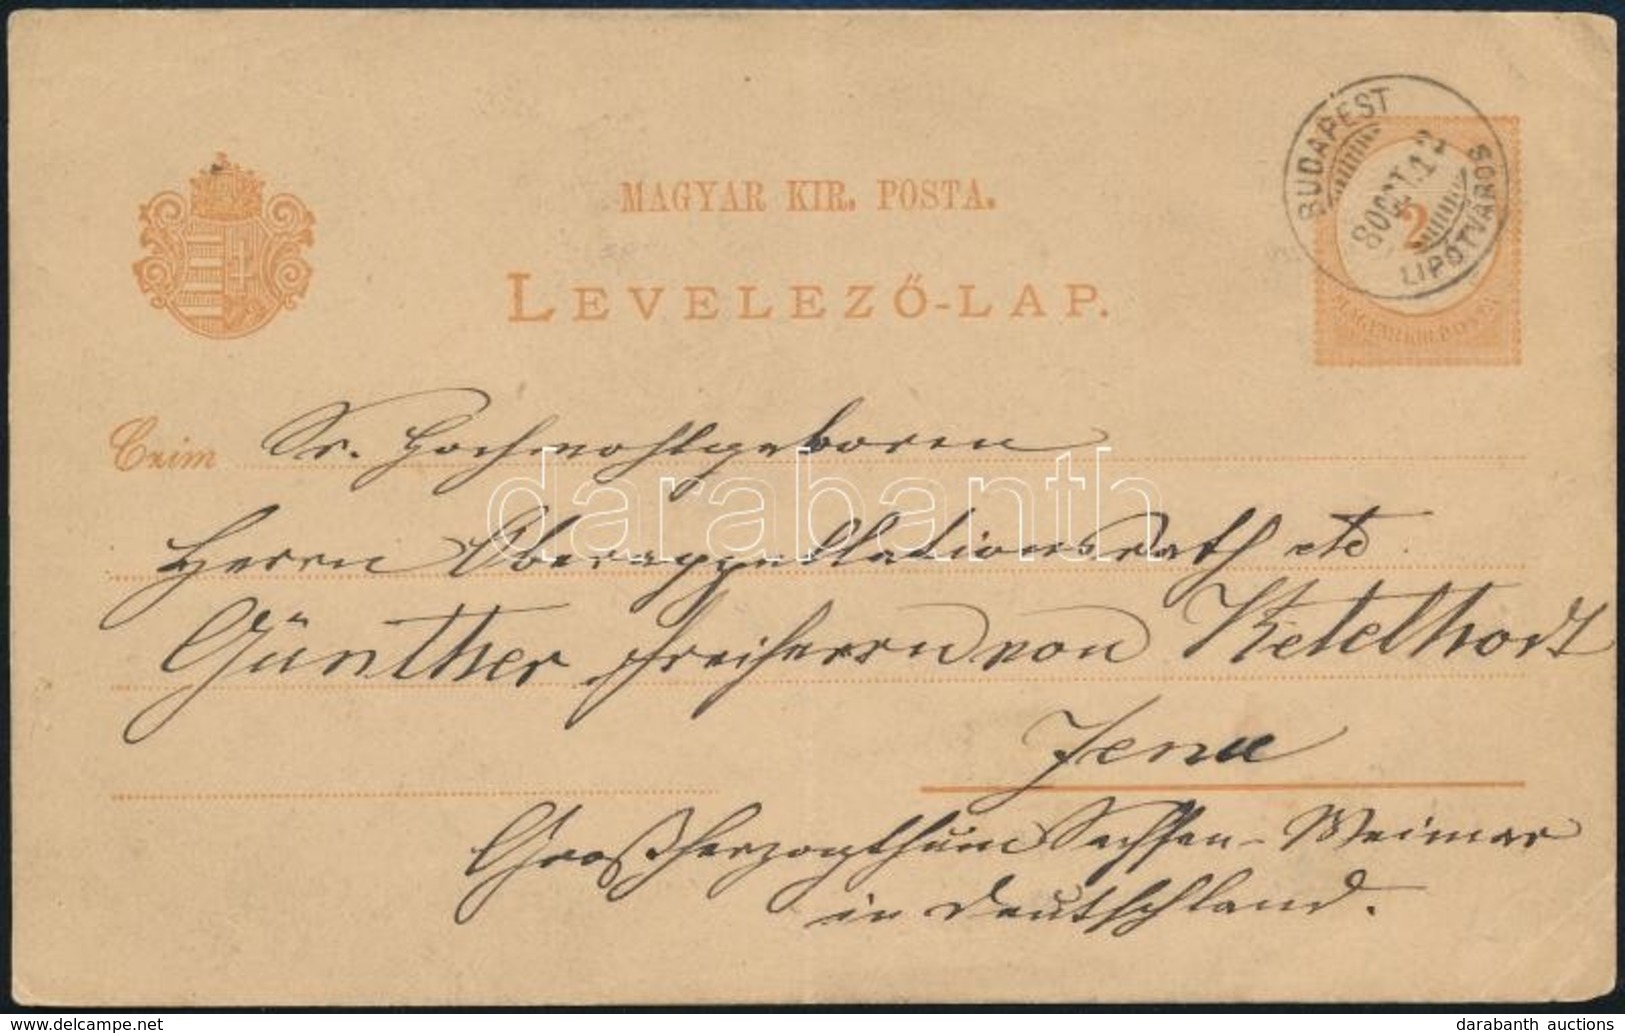 MAGYAR KIR. POSTA.
LEVELEZŐ-LAP.
BUDAPEST
80 OCT. 1
LIPÓTVÁROS
2
MAGYAR KIR. POSTA
Czim Sr. Hochwohlgeboren
Herrn Oberappellationsrath etc
Günther Freiherrn von Ketelhodt
Jena
Großherzogthum Sachsen-Weimar
in Deutschland.
darabanth
www.delcampe.net
darabanth auctions